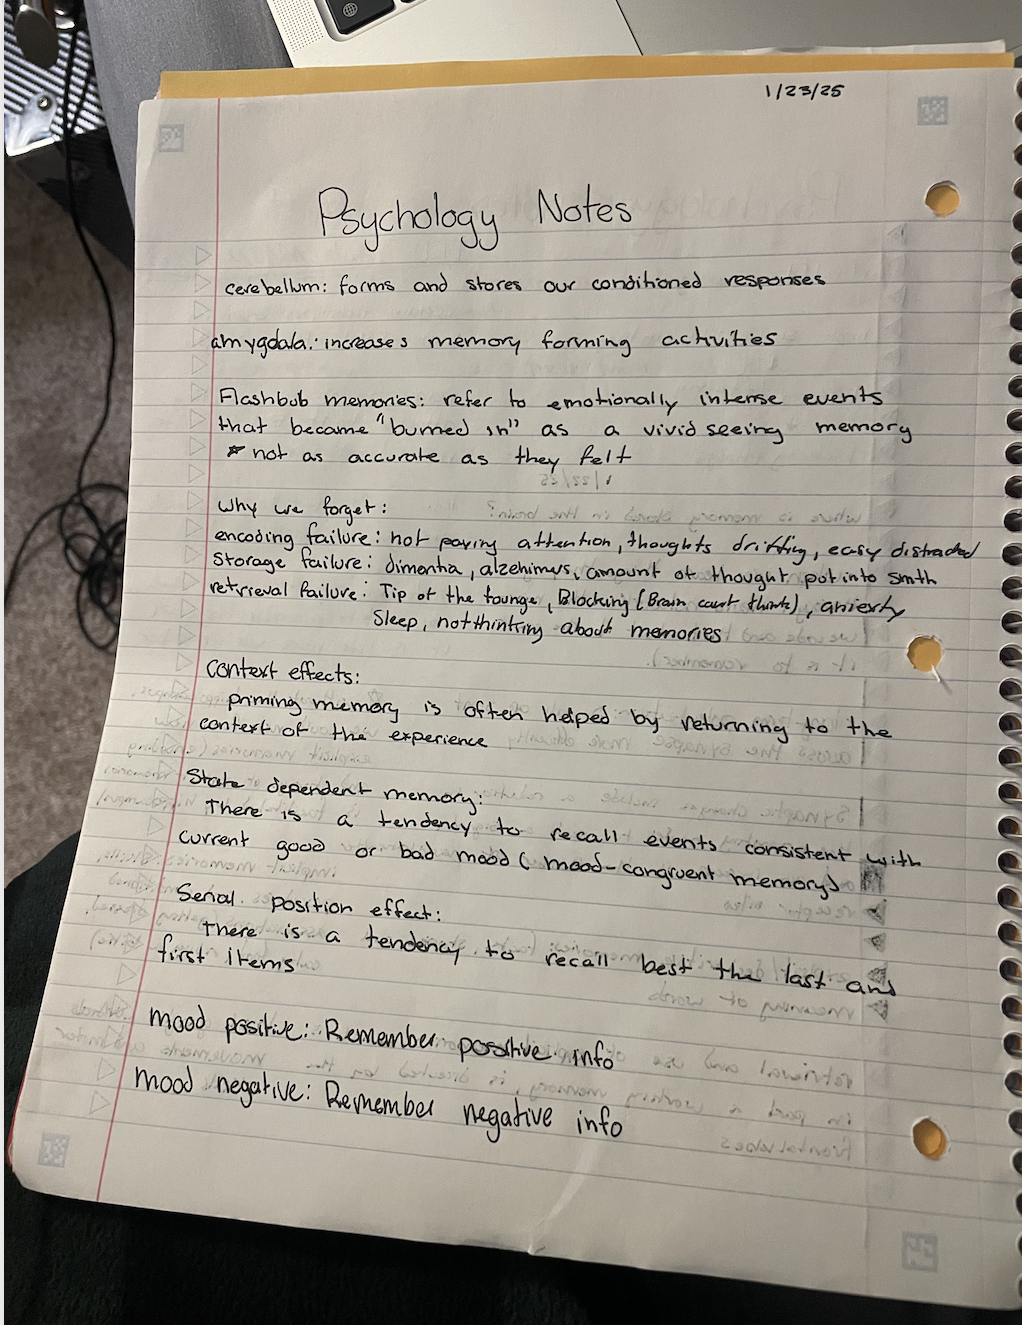 1/23/25
Psychology Notes
cerebellum: forms and stores our conditioned responses
amygdala: increases memory forming activities
Flashbub memories: refer to emotionally intense events
that became "burned in" as a vivid seeing memory
* not as accurate as they felt
1/22/25
Why we forget:
where is memory stored in the brain?
encoding failure: not paying attention, thoughts drifting, easy distracted
Storage failure: dimentia, alzehimus, amount of thought put into smth
retrieval failure: Tip of the tounge, Blocking (Brain cant think), anxiety
Sleep, not thinking about memories
it is to remember).
Context effects:
priming memory is often helped by returning to the
context of the experience
State dependent memory:
There is a tendency to recall events consistent with
current good or bad mood (mood-congruent memory)
Serial position effect:
There is a tendency to recall best the last and
first items
meaning of words
mood positive: Remember positive info
mood negative: Remember negative info